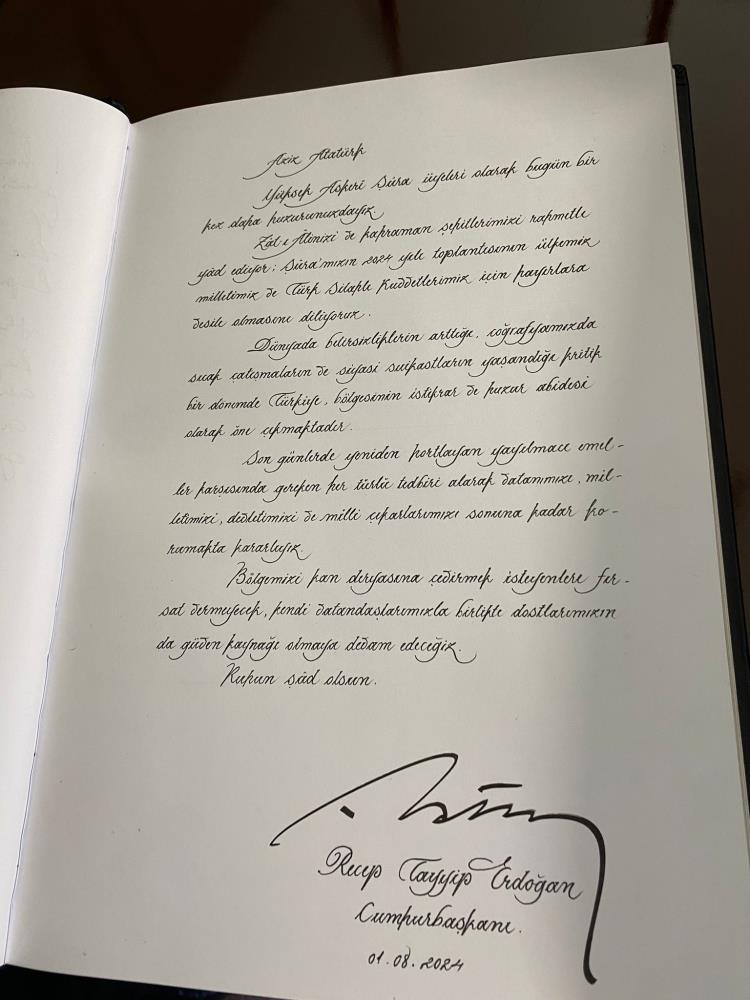 Aziz Atatürk
Yüksek Askerî Şûra üyeleri olarak bugün bir
kez daha huzurunuzdayız.
Zât-ı Âlinizi ve kahraman şehitlerimizi rahmetle
yâd ediyor; Şûra'mızın 2024 yılı toplantısının ülkemiz
milletimiz ve Türk Silahlı Kuvvetlerimiz için hayırlara
vesile olmasını diliyoruz.
Dünyada belirsizliklerin arttığı, coğrafyamızda
sıcak çatışmaların ve siyasi suikastların yaşandığı kritik
bir dönemde Türkiye, bölgesinin istikrar ve huzur abidesi
olarak öne çıkmaktadır.
Son günlerde yeniden hortlayan yayılmacı emel-
ler karşısında gereken her türlü tedbiri alarak vatanımızı, mil-
letimizi, devletimizi ve milli çıkarlarımızı sonuna kadar ko-
rumakta kararlıyız.
Bölgemizi kan deryasına çevirmek isteyenlere fır-
sat vermeyecek, kendi vatandaşlarımızla birlikte dostlarımızın
da güven kaynağı olmaya devam edeceğiz.
Ruhun şâd olsun.
Recep Tayyip Erdoğan
Cumhurbaşkanı.
01.08.2024